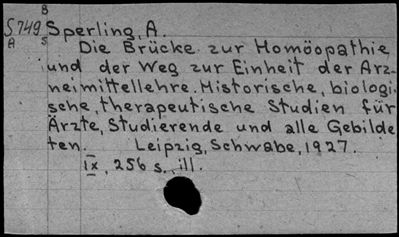 B
S749 Sperling, A.
A s Die Brücke zur Homöopathie
und der Weg zur Einheit der Arz-
neimittellehre. Historische, biologi-
sche, therapeutische Studien für
Ärzte, Studierende und alle Gebilde
ten. Leipzig, Schwabe, 1927.
IX, 256 s., ill.